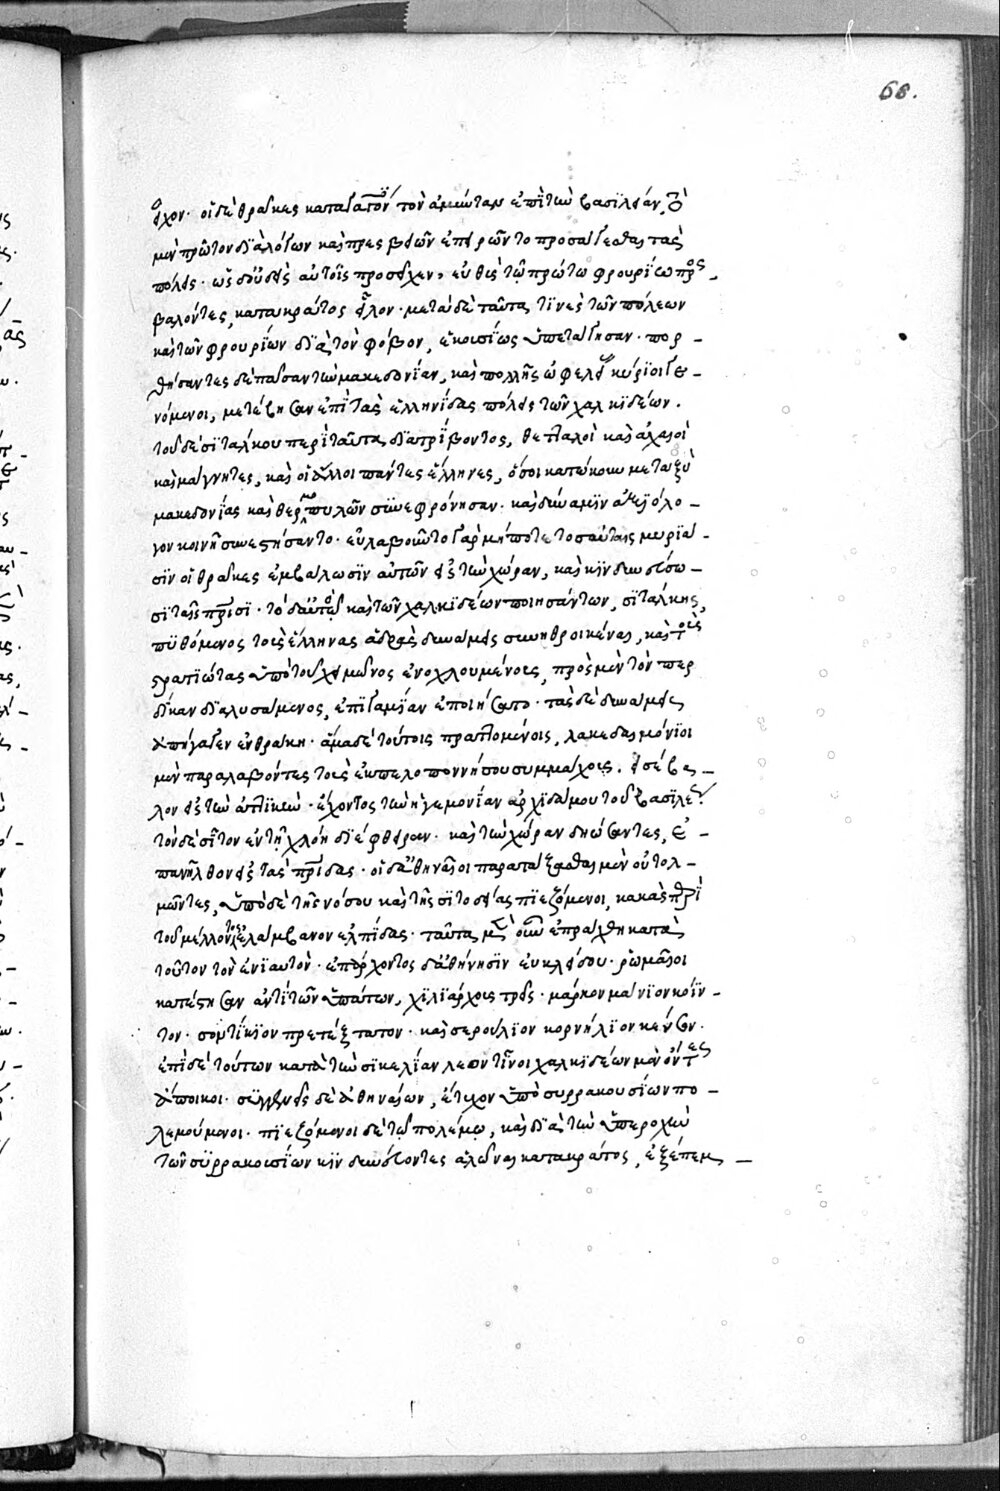 68.
εἶχον· οἱ δὲ θρᾷκες καταγαγόντες τὸν ἀμύνταν ἐπὶ τὴν βασιλείαν, τὸ
μὲν πρῶτον διὰ λόγων καὶ πρεσβειῶν ἐπειρῶντο προσαγεσθαι τὰς
πόλεις· ὡς δ' οὐδεὶς αὐτοῖς προσεῖχεν, εὐθὺς τῷ πρώτῳ φρουρίῳ προσ-
βαλόντες, κατακράτος εἷλον· μετὰ δὲ ταῦτα τινὲς τῶν πόλεων
καὶ τῶν φρουρίων διὰ τὸν φόβον, ἑκουσίως ὑπετάγησαν· πορ-
θήσαντες δὲ πᾶσαν τὴν μακεδονίαν, καὶ πολλῆς ὠφελείας κύριοι γε-
νόμενοι, μετέβησαν ἐπὶ τὰς ἑλληνίδας πόλεις τῶν χαλκιδέων.
τοῦ δὲ σιτάλκου περὶ ταῦτα διατρίβοντος, θετταλοὶ καὶ ἀχαιοὶ
καὶ μάγνητες, καὶ οἱ ἄλλοι πάντες ἕλληνες, ὅσοι κατώκουν μεταξὺ
μακεδονίας καὶ θερμοπυλῶν συνεφρόνησαν· καὶ δύναμιν ἀξιόλο-
γον κοινῇ συνεστήσαντο· εὐλαβοῦντο γὰρ μήποτε τοσαύταις μυριά-
σιν οἱ θρᾷκες ἐμβάλωσιν αὐτῶν εἰς τὴν χώραν, καὶ κινδυνεύσω-
σι ταῖς πατρίσι· τὸ δ' αὐτὸ καὶ τῶν χαλκιδέων ποιησάντων, σιτάλκης,
πυθόμενος τοὺς ἕλληνας ἁδρὰς δυνάμεις συνηθροικέναι, καὶ τοὺς
στρατιώτας ὑπὸ τοῦ χειμῶνος ἐνοχλουμένους, πρὸς μὲν τὸν περ
δίκαν διαλυσάμενος, ἐπιγαμίαν ἐποιήσατο· τὰς δὲ δυνάμεις
ἀπήγαγεν ἐν θρᾴκῃ· ἅμα δὲ τούτοις πραττομένοις, λακεδαιμόνιοι
μὲν παραλαβόντες τοὺς ἐκ πελοποννήσου συμμάχους. εἰσέβα-
λον εἰς τὴν ἀττικὴν· ἔχοντος τὴν ἡγεμονίαν ἀρχιδάμου τοῦ βασιλέως.
τὸν δὲ σῖτον ἐν τῇ χλόῃ διέφθειραν· καὶ τὴν χώραν δῃώσαντες, ἐ-
πανῆλθον εἰς τὰς πατρίδας· οἱ δ' ἀθηναῖοι παρατάξασθαι μὲν οὐ τολ-
μῶντες, ὑπὸ δὲ τῆς νόσου καὶ τῆς σιτοδείας πιεζόμενοι, κακὰς περὶ
τοῦ μέλλοντος ἐλάμβανον ἐλπίδας· ταῦτα μὲν οὖν ἐπράχθη κατὰ
τοῦτον τὸν ἐνιαυτὸν· ἐπ' ἄρχοντος δ' ἀθήνησιν εὐκλείδου· ῥωμαῖοι
κατέστησαν ἀντὶ τῶν ὑπάτων, χιλιάρχους τρεῖς· μάρκον μάνιον κόϊν-
τον· σουτίκιον πρετέξτατον· καὶ σερούλιον κορνήλιον κένσον.
ἐπὶ δὲ τούτων κατὰ τὴν σικελίαν λεοντῖνοι χαλκιδέων μὲν ὄντες
ἄποικοι· συγγενεῖς δὲ ἀθηναίων, ἔτυχον ὑπὸ συρρακουσίων πο-
λεμούμενοι· πιεζόμενοι δὲ τῷ πολέμῳ, καὶ διὰ τὴν ὑπεροχὴν
τῶν συρρακουσίων κινδυνεύοντες ἁλῶναι κατακράτος, ἐξέπεμ-